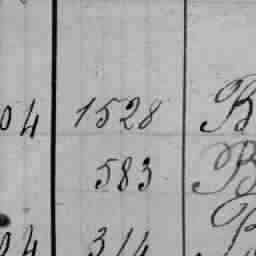 04 1528 B
583 B
04 314 B